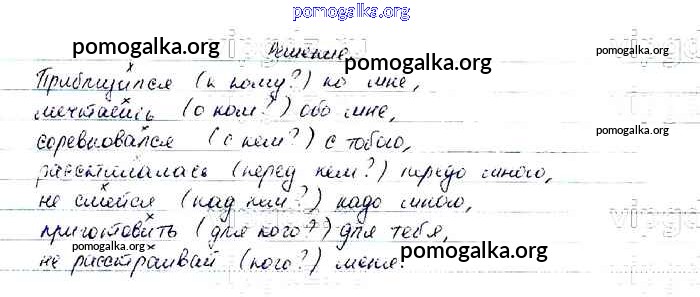 pomogalka.org
pomogalka.org
Решение
Приблизился (к кому?) ко мне,
pomogalka.org
мечтаешь (о ком?) обо мне,
pomogalka.org
соревновался (с кем?) с тобою,
pomogalka.org
расстилалась (перед кем?) передо мною,
не смейся (над кем?) надо мною,
приготовить (для кого?) для тебя,
pomogalka.org
pomogalka.org
не расстраивай (кого?) меня.